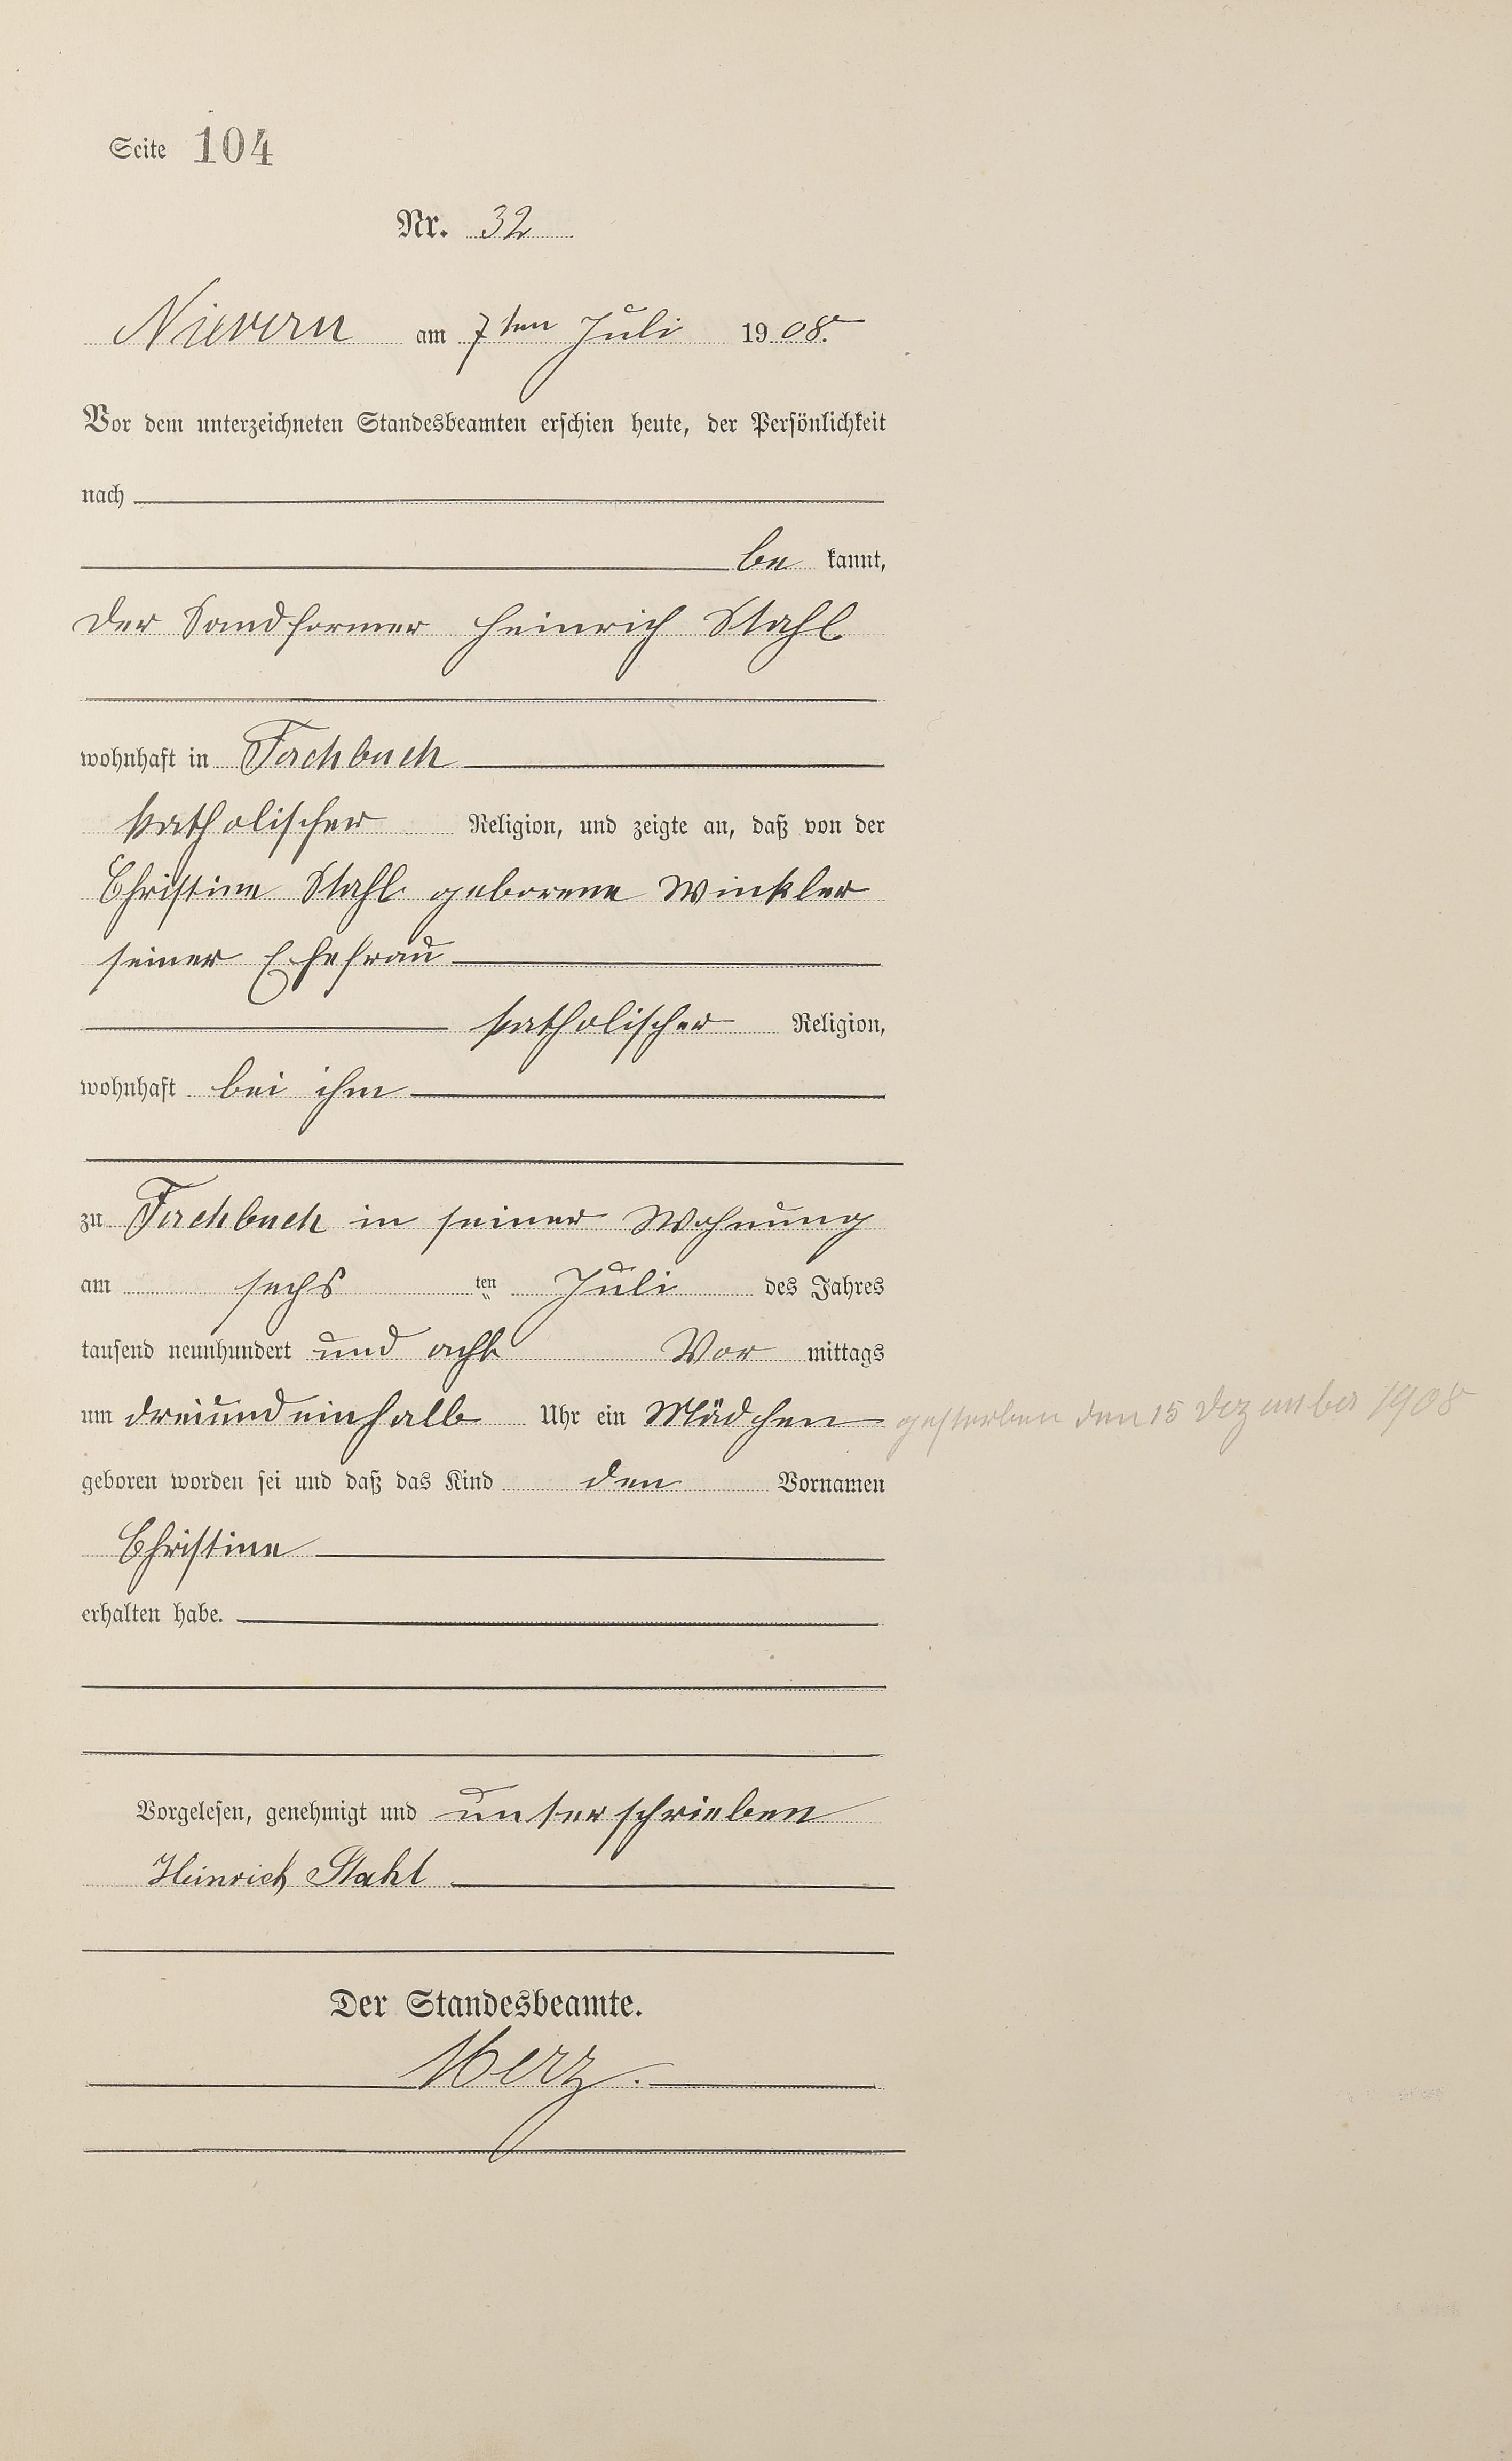 Seite 104
Nr. 32
Nievern am 7ten Juli 1908.
Vor dem unterzeichneten Standesbeamten erschien heute, der Persönlichkeit
nach
be kannt,
der Sandformer Heinrich Stahl
wohnhaft in Fachbach
katholischer Religion, und zeigte an, daß von der
Christine Stahl geborene Winkler
seiner Ehefrau
katholischer Religion,
wohnhaft bei ihm
zu Fachbach in seiner Wohnung
am sechs ten Juli des Jahres
tausend neunhundert und acht Vor mittags
um dreiundeinhalb Uhr ein Mädchen gestorben den 15 Dezember 1908
geboren worden sei und daß das Kind den Vornamen
Christine
erhalten habe.
Vorgelesen, genehmigt und unterschrieben
Heinrich Stahl
Der Standesbeamte.
Merz.